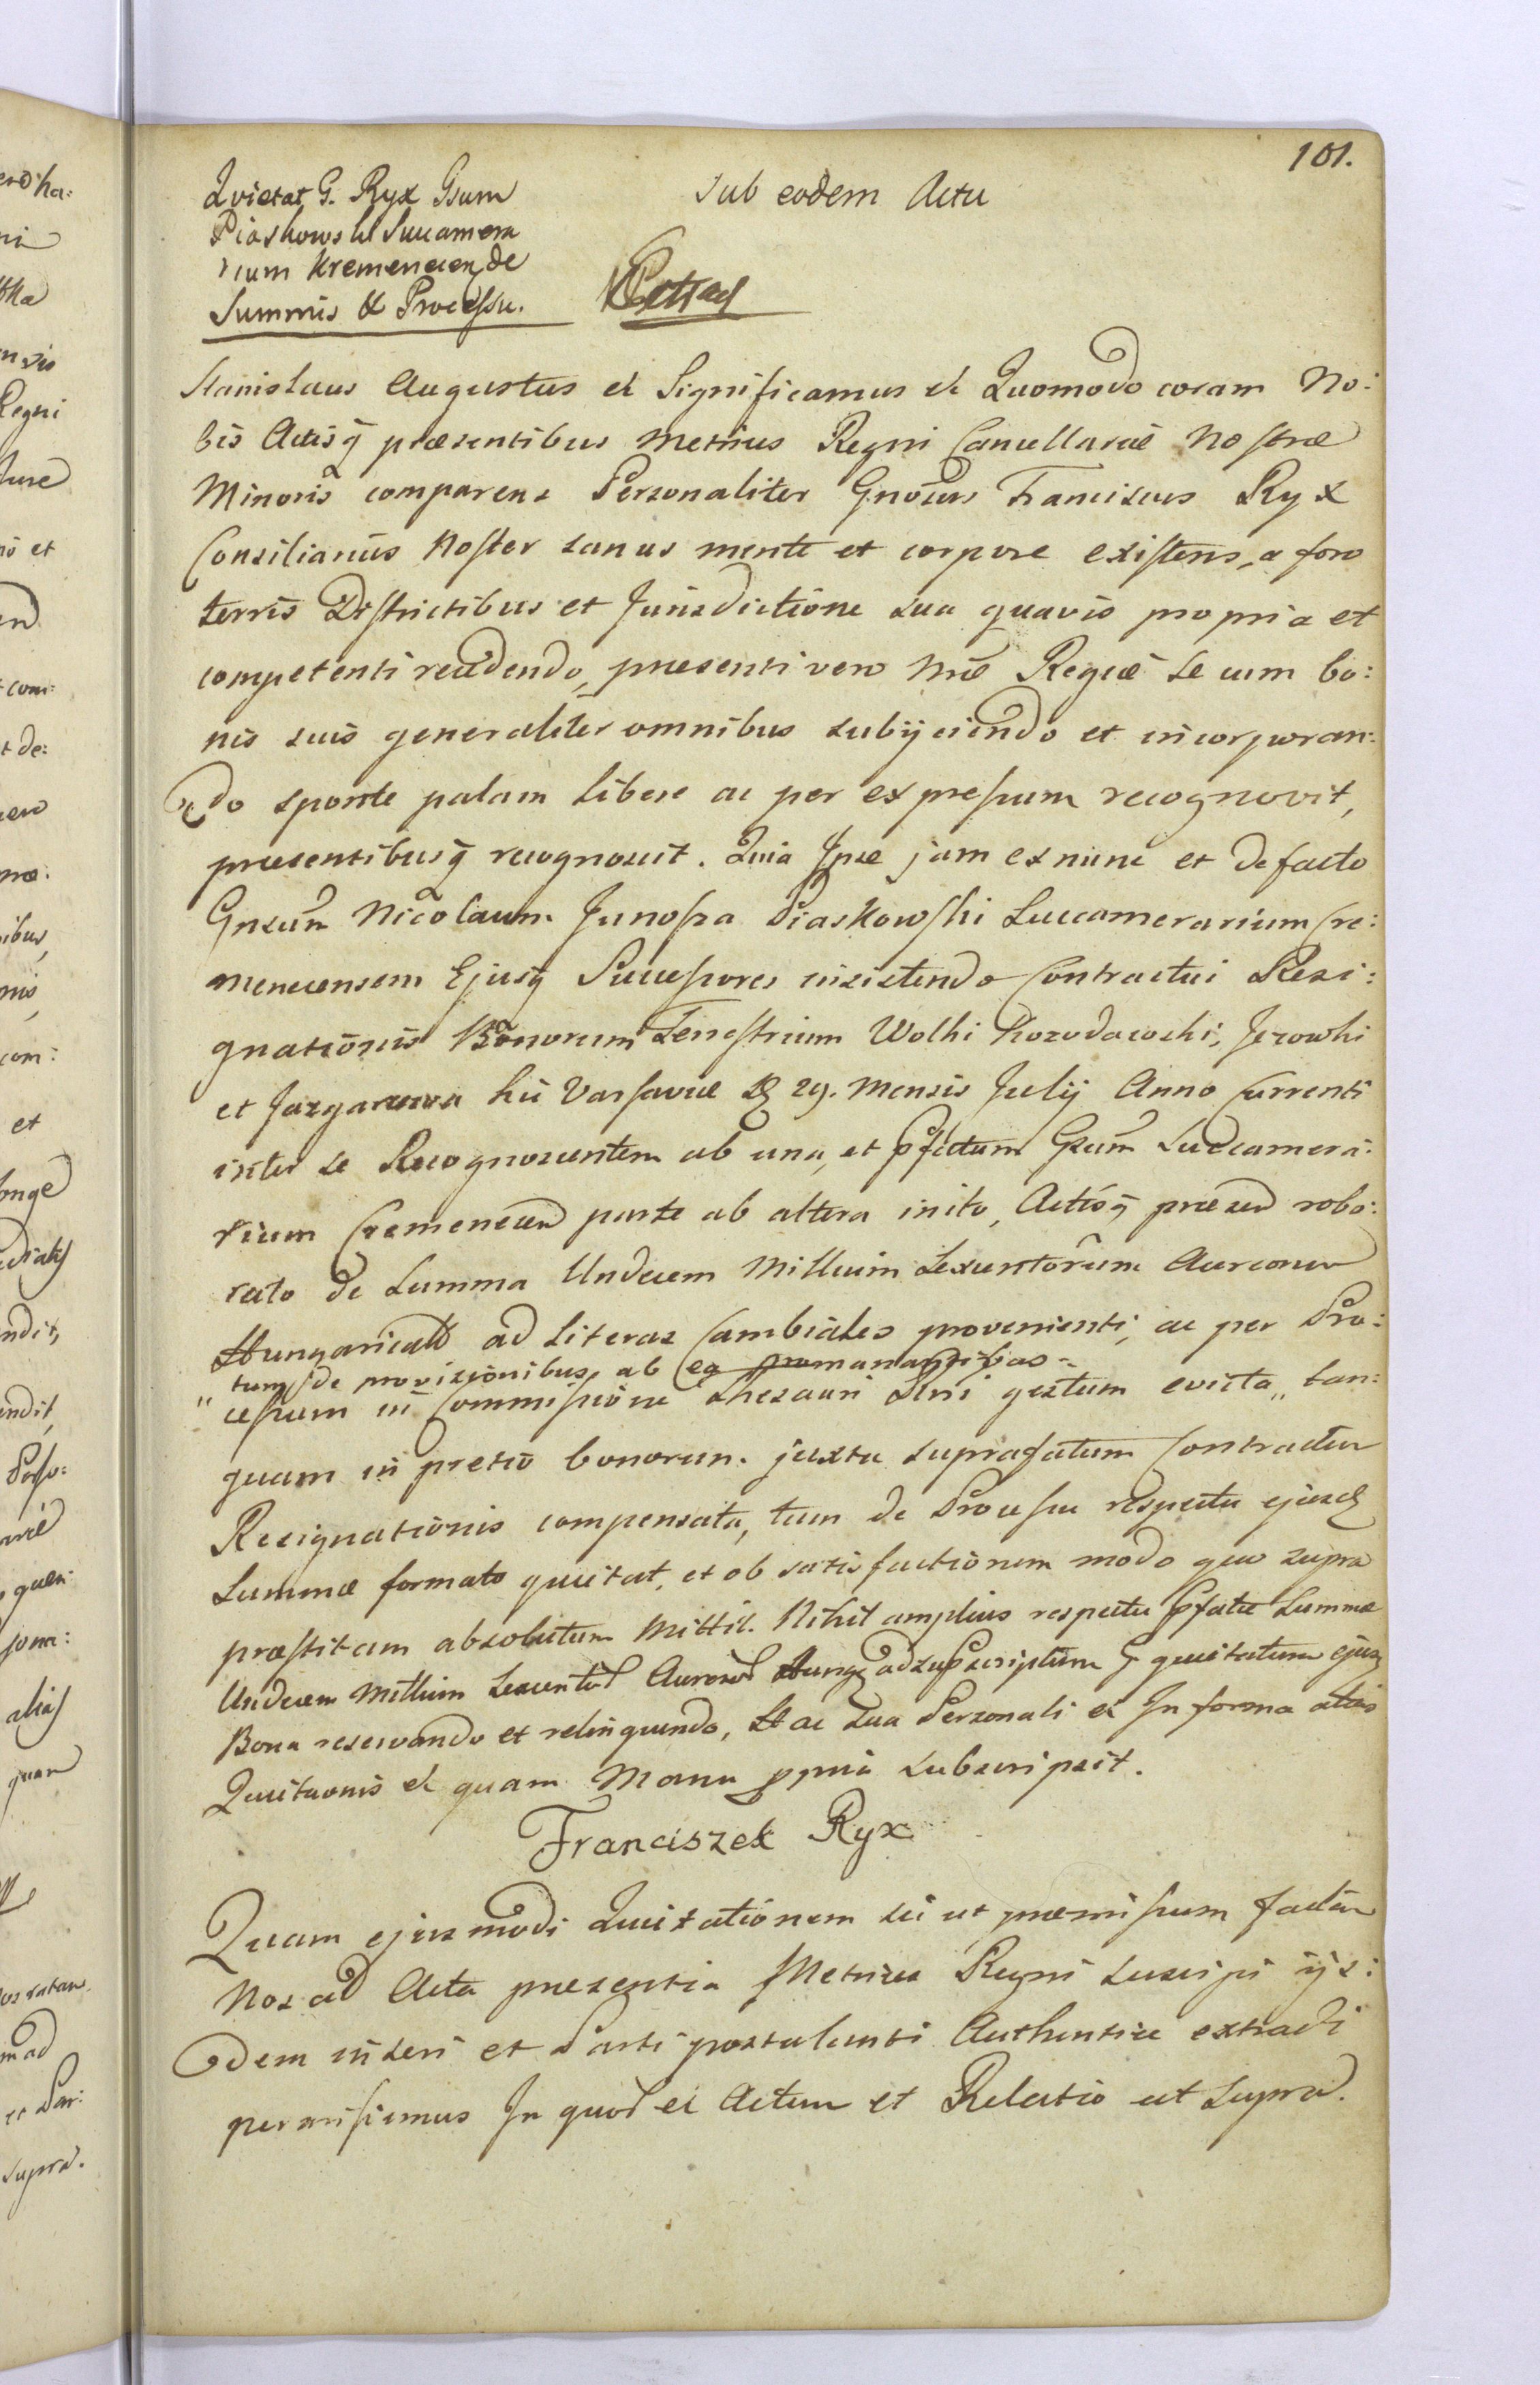 101.
Quietat G. Ryx Gsum
Piaskowski Succamera
rium Kremenecen de
Summis & Processu.
Sub eodem Actu
Stanislaus Augustus et Significamus et Quomodo coram No:
bis Actisq̃ præsentibus Metrices Regni Cancellariæ Nostræ
Minoris comparens Personaliter Gnosus Franciscus Ryx
Consiliarius Noster sanus mente et corpore existens, a foro
terris Districtibus et Jurisdictione sua quavis propria et
competenti recedendo, præsenti vero Mcæ Regiæ se cum bo:
nis suis generaliter omnibus subijciendo et incorporan:
do sponte palam libere ac per expressum recognovit,
præsentibusq̃ recognoscit. Quia Ipse jam ex nunc et de facto
Gnsum Nicolaum Junosza Piaskowski Succamerarium Cre:
menecensem Ejusq̃ Successores insistendo Contractui Resi:
gnationis Bonorum Terrestrium Wolki Kozodawski, Jezowki
et Jazgarzewa hic Varsaviæ d. 29. Mensis Julij Anno Currenti
inter se Recognoscentem ab una, et pfatum Gsum Succamera:
rium Cremenecen parte ab altera inito, Actisq̃ præsen robo:
rato de Summa Undecem Millium Sexcentorum Aureorum
Hungarical ad Literas Cambiales provenienti, ac per Pro:
tum de provisionibus, ab ea promanantibus
" cessum in Commissione Thesauri Rni gestum evicta,, tan:
quam in pretio bonorum juxta suprafatum Contractum
Resignationis compensata, tum de Processu respectu ejusd
Summæ formato quietat, et ob satisfactionem modo quo supra
præstitam absolutum Mittit. Nihil amplius respectu pfatæ Summæ
Undecem Millium Sexcentor Aureor Hung ad supscriptum G quietatum ejusq̃
Bona reservando et relinquendo, Hac Sua Personali et In forma
Quietaonis et quam Manu ppria subscripsit.
Franciszek Ryx
Quam ejusmodi Quietationem sic ut præmissum factam
Nos ad Acta præsentia Metrices Regni suscipi ijs:
dem inseri et Parti postulanti Authentice extradi
permisimus In quor et Actum et Relatio ut supra.